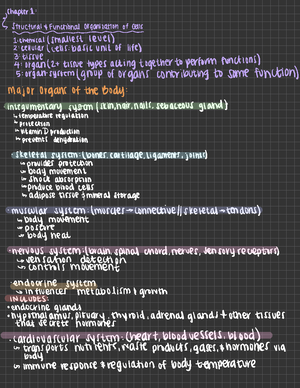 Chapter 1:
Structural & Functional Organization of Cells
1: chemical (smallest level)
2: cellular (cells: basic unit of life)
3: tissue
4: organ (2+ tissue types acting together to perform functions)
5: organ system (group of organs contributing to some function)
Major Organs of the Body:
integumentary system (skin, hair, nails, sebaceous gland)
↳ temperature regulation
↳ protection
↳ vitamin D production
↳ prevents dehydration
skeletal system: (bones, cartilage, ligaments, joints)
↳ provides protection
↳ body movement
↳ shock absorption
↳ produce blood cells
↳ adipose tissue & mineral storage
muscular system (muscles → connective // skeletal → tendons)
↳ body movement
↳ posture
↳ body heat
nervous system: (brain, spinal chord, nerves, sensory receptors)
↳ sensation detection
↳ controls movement
endocrine system
↳ influences metabolism & growth
INCLUDES:
• endocrine glands
• hypothalamus, pituary, thyroid, adrenal glands & other tissues
that secrete hormones
• cardiovascular system: (heart, blood vessels, blood)
↳ transports nutrients, waste products, gases, & hormones via
body
↳ immune response & regulation of body temperature